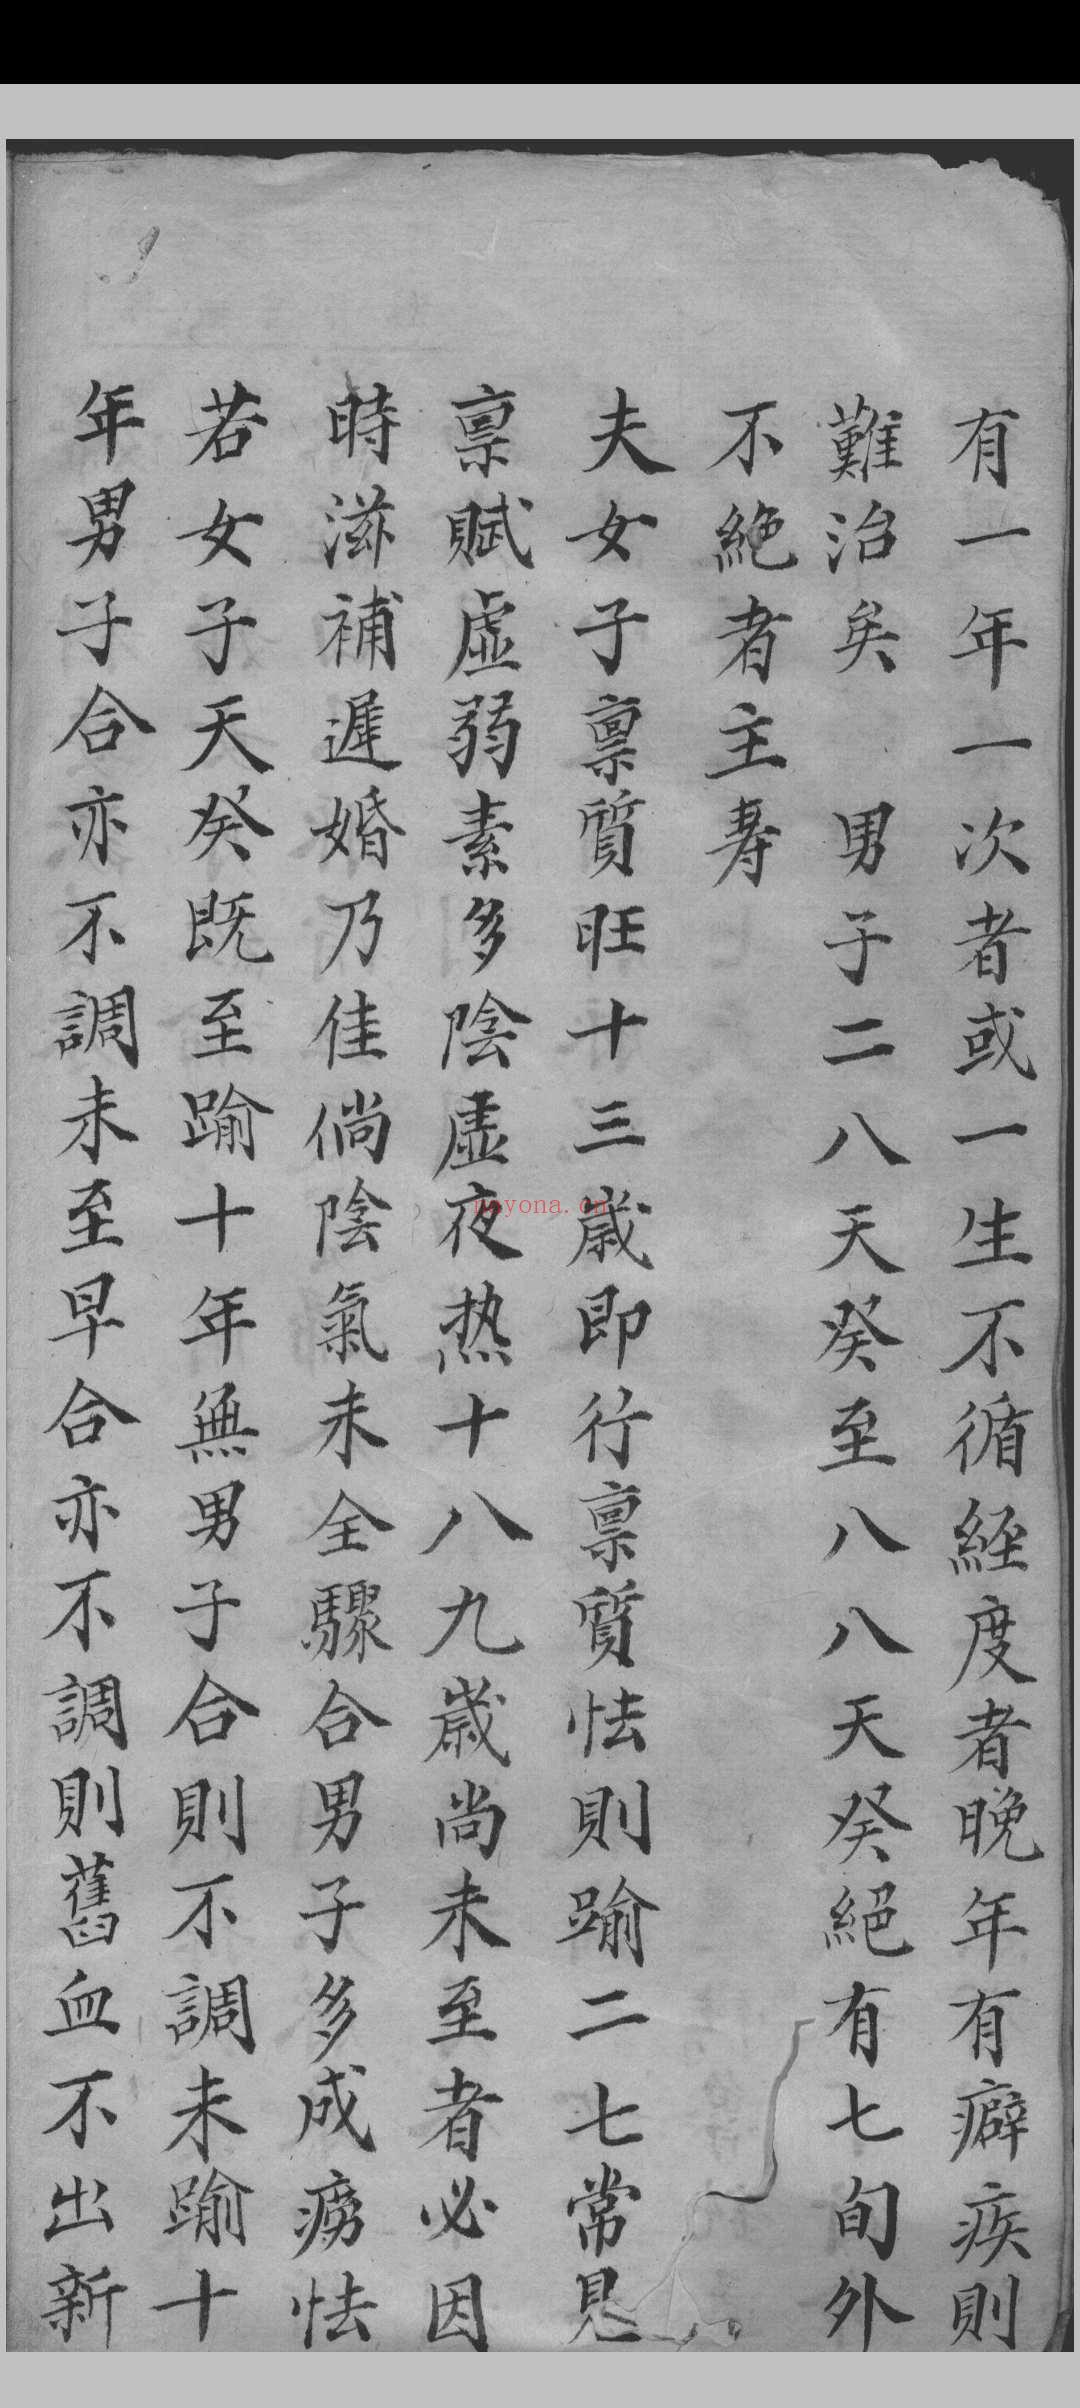 有一年一次者或一生不循經度者晚年有癖疾則
難治矣　男子二八天癸至八八天癸絕有七旬外
不絕者主寿
夫女子禀質旺十三歲即行禀質怯則踰二七常見
禀賦虛弱素多陰虛夜热十八九歲尚未至者必因
時滋補遲婚乃佳倘陰氣未全驟合男子多成癆怯
若女子天癸既至踰十年無男子合則不調未踰十
年男子合亦不調未至早合亦不調則舊血不出新
nayona.cn